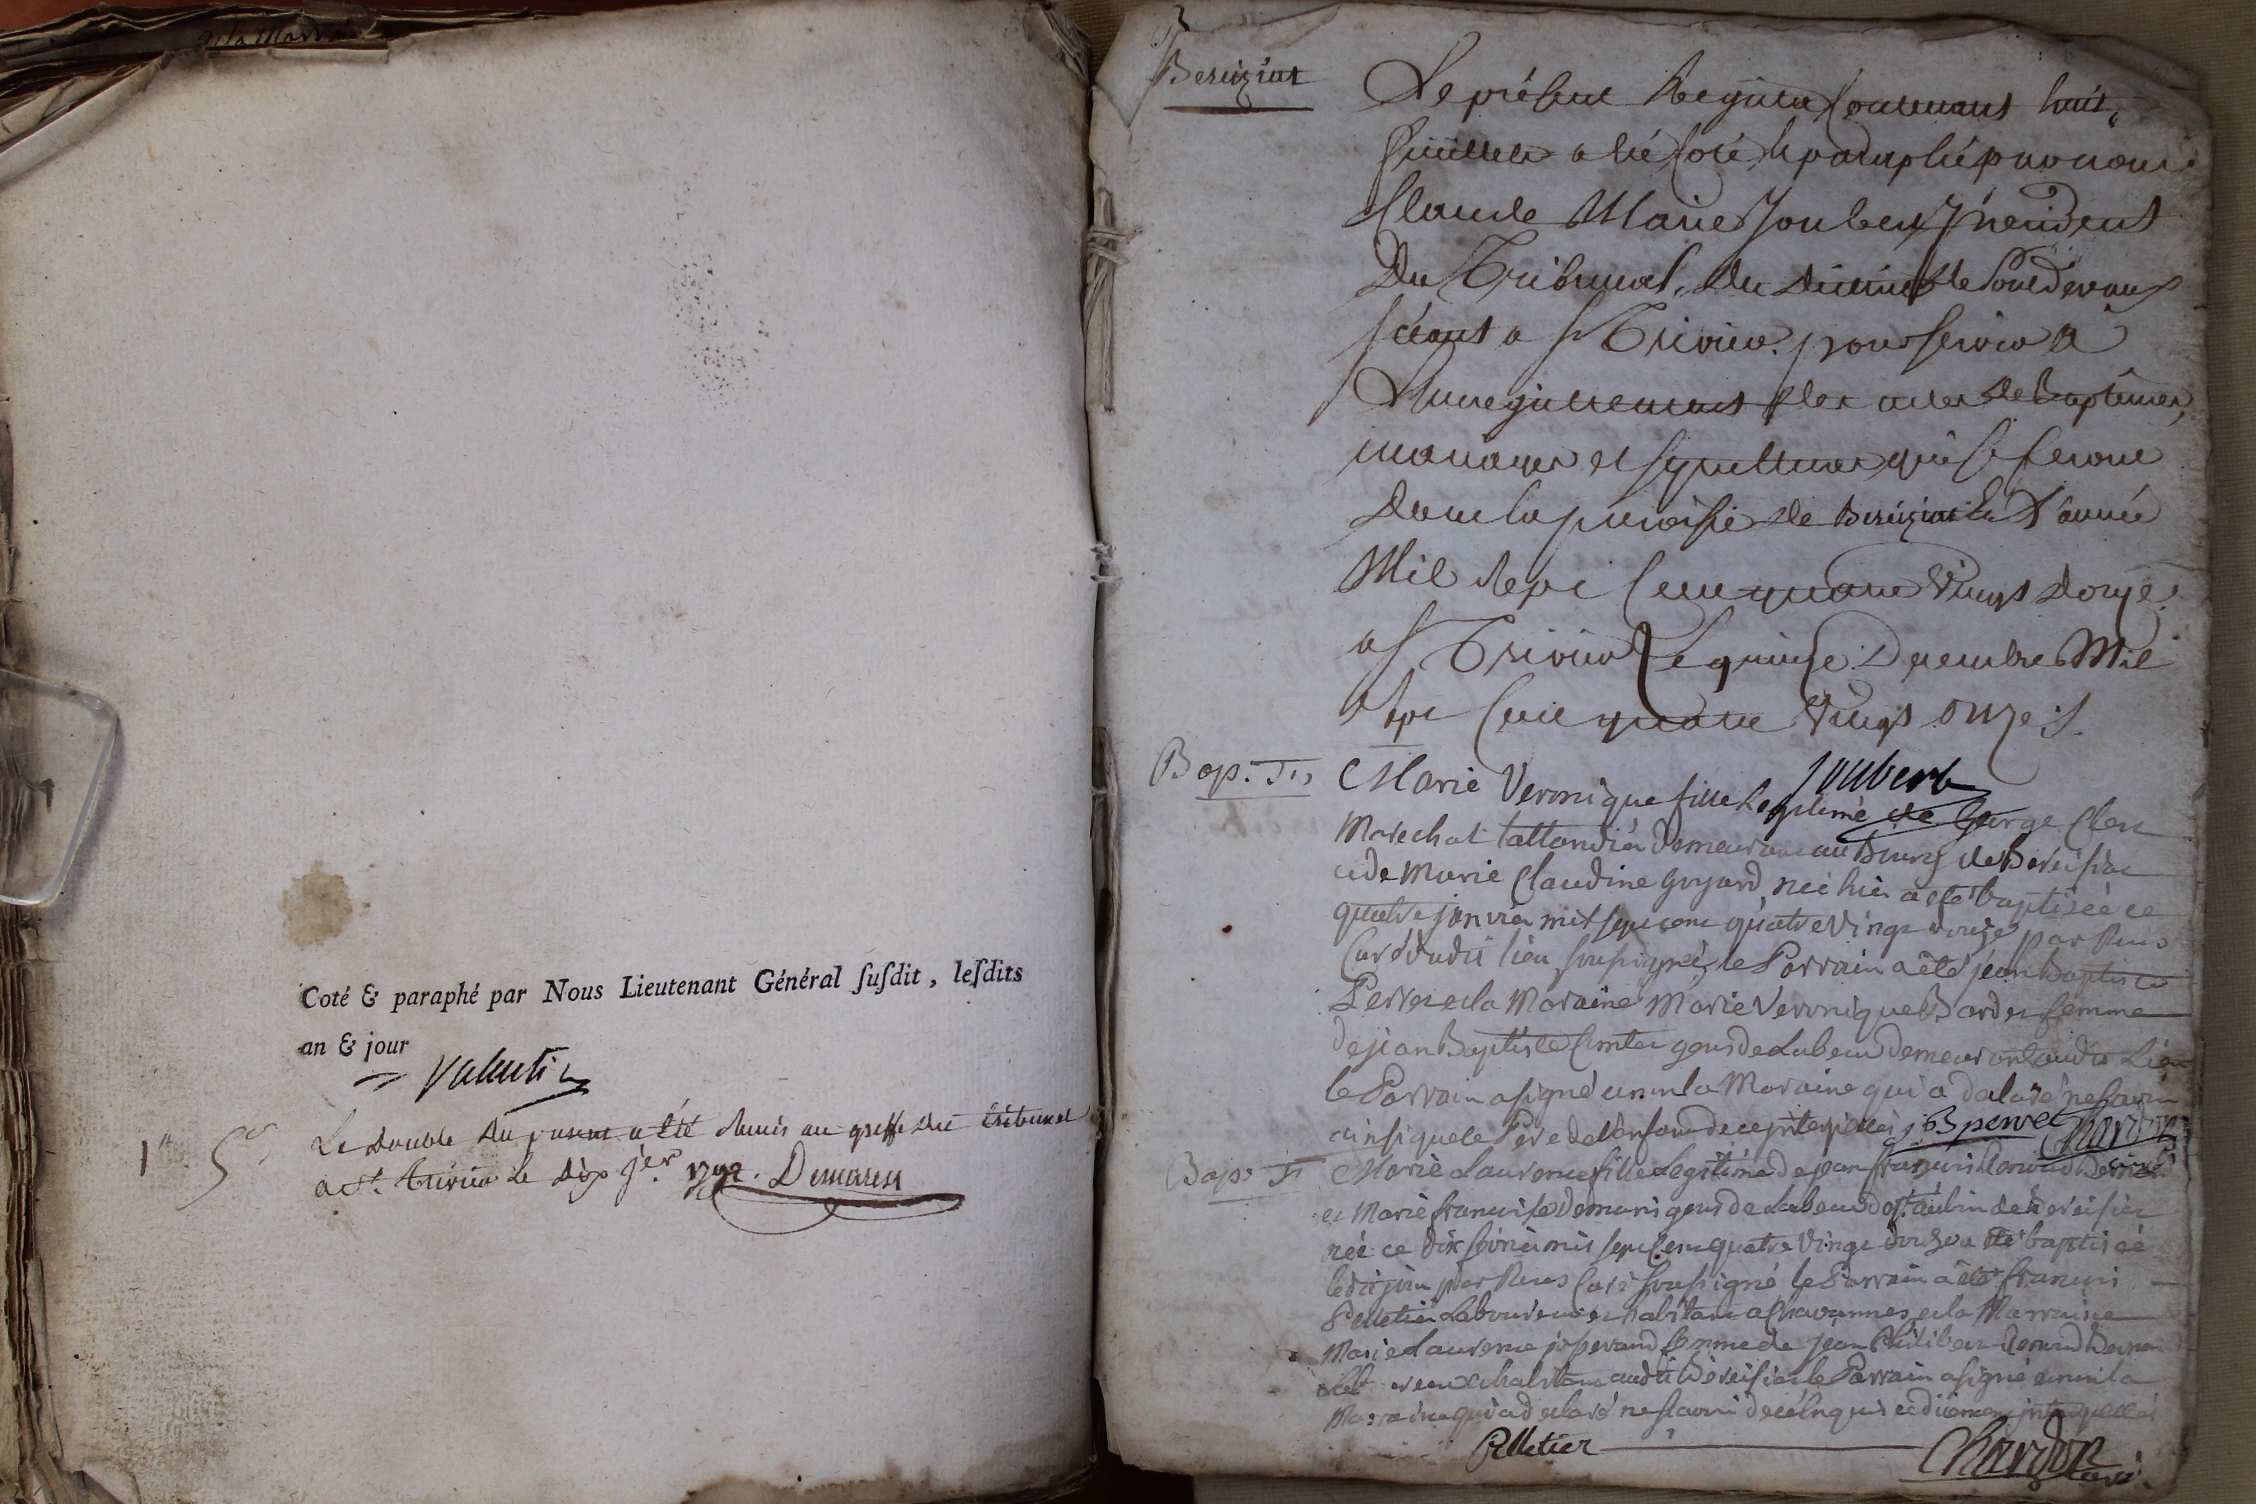 Coté & paraphé par Nous Lieutenant Général ſuſdit, leſdits
an & jour
Valentin
1er 5s
Le double du present a été remis au greffe du tribunal
a St. trivier le dix jer. 1792. Demarest
Bereiziat
Le présent Registre Contenant huit
feuillets a été Coté & paraphé par nous
Claude Marie Joubert Président
Du Tribunal du district de Pontdevaux
séant a St Trivier. pour servir a
L'enregistrement des actes de Baptêmes,
mariages et sepultures qui se feront
dans la paroisse de Bereiziat L'année
Mil Sept Cent quatre Vingt douze.
a St Trivier Le quinze Decembre Mil
Sept Cent quatre Vingt onze.
Joubert
Bap.
Marie Veronique fille Legitime de George Clerc
Marechal tallandier demeurant au Bourg de Bereisiat
et de Marie Claudine Goyard, neé hier a été baptiseé ce
quatre janvier mil sept cent quatre Vingt douze par Nous
Curé dudit lieu soussigné, le Parrain a été jean Baptiste
Perret et la Maraine Marie Veronique Bardet femme
de jean Baptiste gens de Labeur demeurant audit Lieu
le Parrain a signé et non la Maraine qui a declaré ne savoir
ainsi que le Pere de l'enfant de ce interpellés j B perret Chardon
curé
Bap.
Marie Laurence fille Legitime de jean françois
et Marie francoise gens de Labeur de St. aubin de Bereisiat
née ce dix fevrier mil sept Cent quatre Vingt douze a été baptiseé
ledit jour par Nous Curé soussigné le Parrain a été francois
Pelletier Laboureur habitant a Chavannes et la Marraine
Marie Laurence josserand femme de jean Philibert
habitant audit Bereisiat le Parrain a signé et non la
Marraine qui a declaré ne scavoir de ce enquis et interpelleé
Pelletier
Chardon
curé